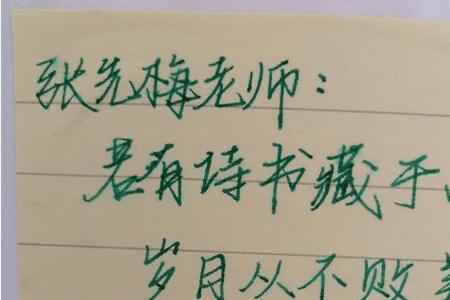 张先梅老师：
若有诗书藏于
岁月从不败